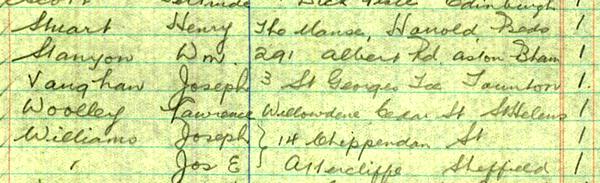 Scott Gertrude Dick Place Edinburgh 1
Stuart Henry The Manse, Harrold, Beds 1
Stanyon Wm. 291 Albert Rd. Aston Bham 1
Vaughan Joseph 3 St Georges Tce Taunton 1.
Woolley Lawrence Willowdene Cedar St StHelens 1
Williams Joseph } 14 Chippendon St 1
" Jos E } Attercliffe Sheffield 1